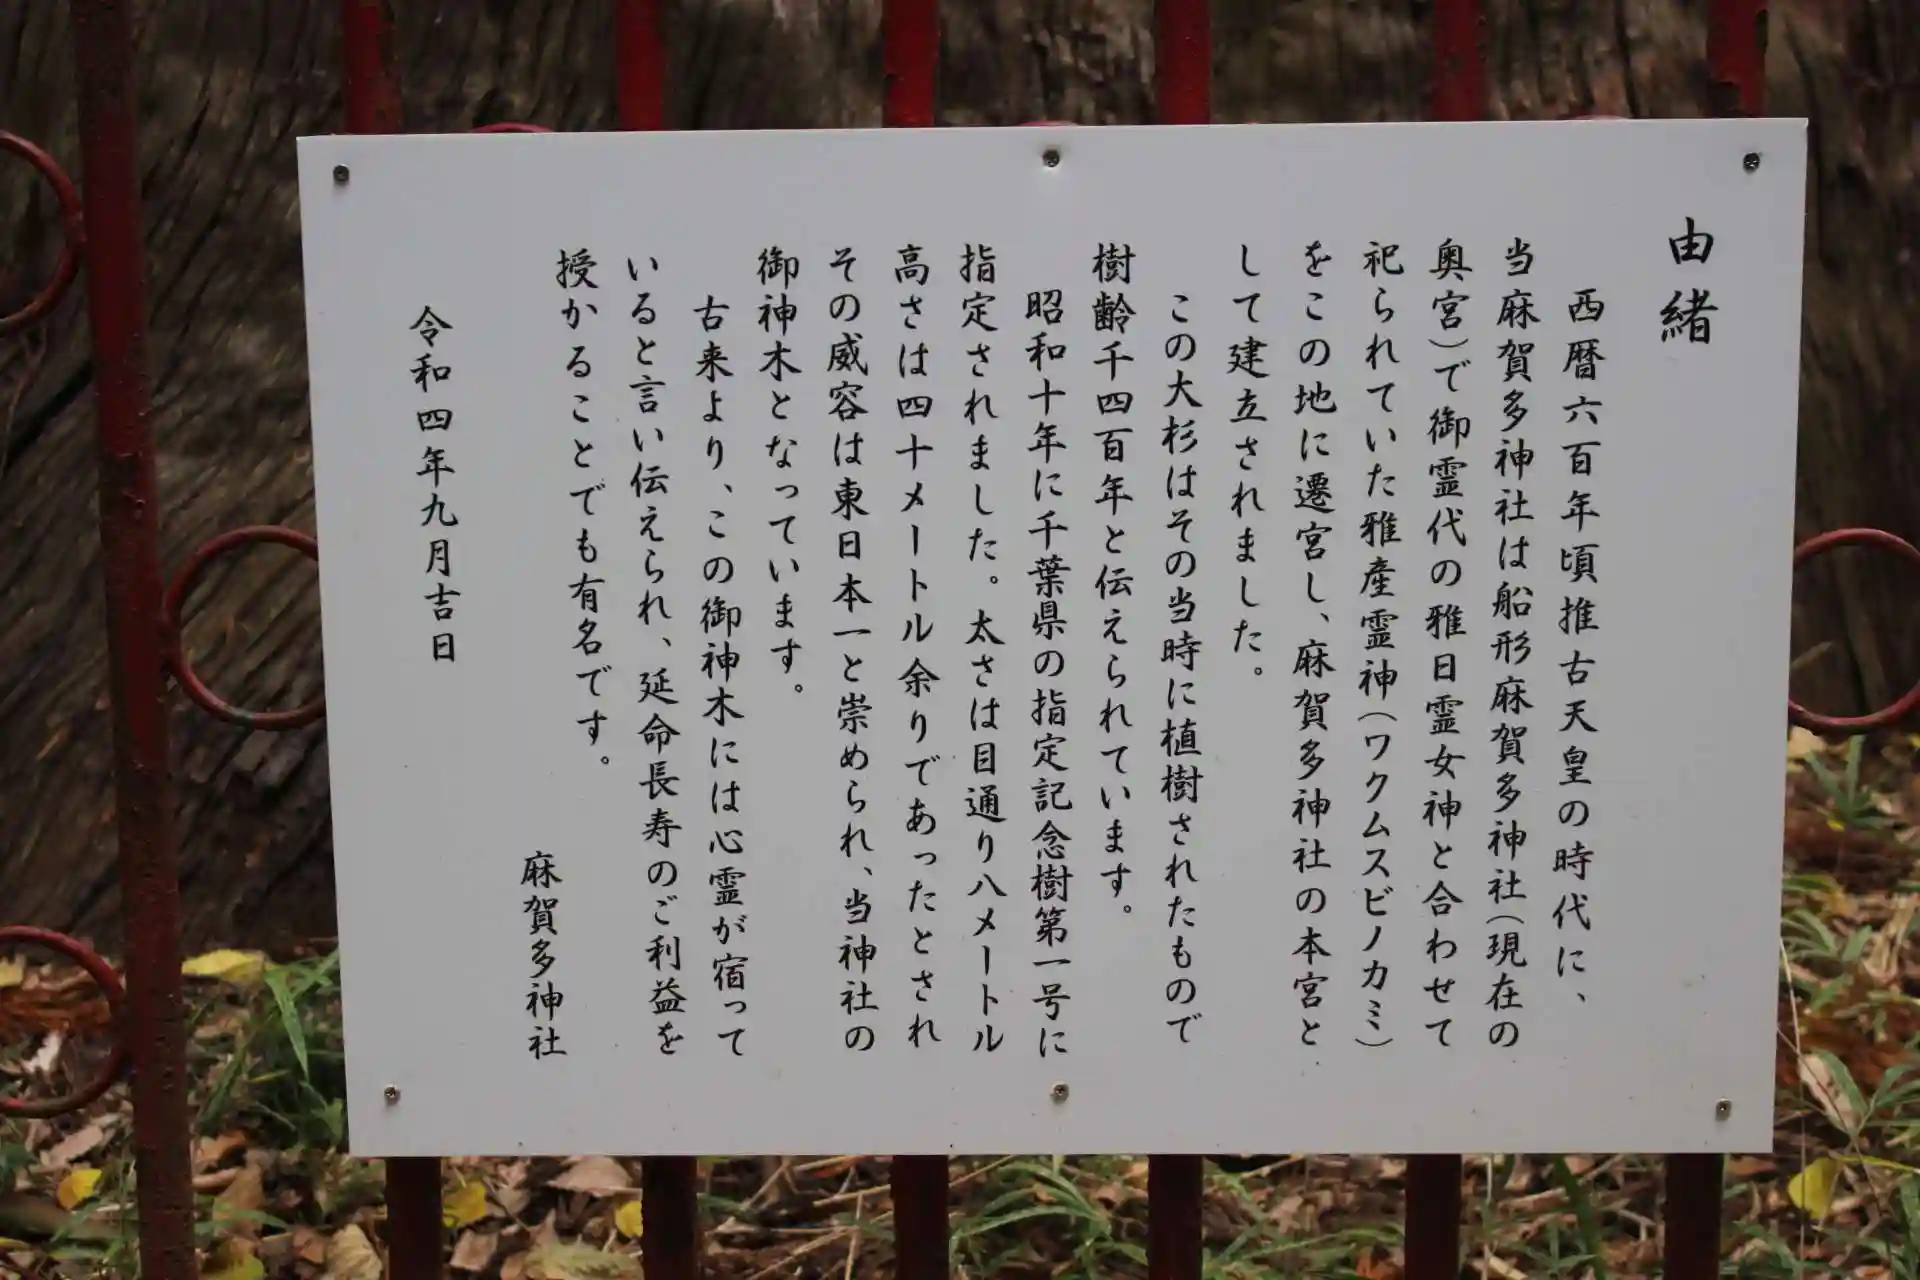 由緒
西暦六百年頃推古天皇の時代に、
当麻賀多神社は船形麻賀多神社（現在の
奥宮）で御霊代の雅日霊女神と合わせて
祀られていた雅産霊神（ワクムスビノカミ）
をこの地に遷宮し、麻賀多神社の本宮と
して建立されました。
この大杉はその当時に植樹されたもので
樹齢千四百年と伝えられています。
昭和十年に千葉県の指定記念樹第一号に
指定されました。太さは目通り八メートル
高さは四十メートル余りであったとされ
その威容は東日本一と崇められ、当神社の
御神木となっています。
古来より、この御神木には心霊が宿って
いると言い伝えられ、延命長寿のご利益を
授かることでも有名です。
麻賀多神社
令和四年九月吉日